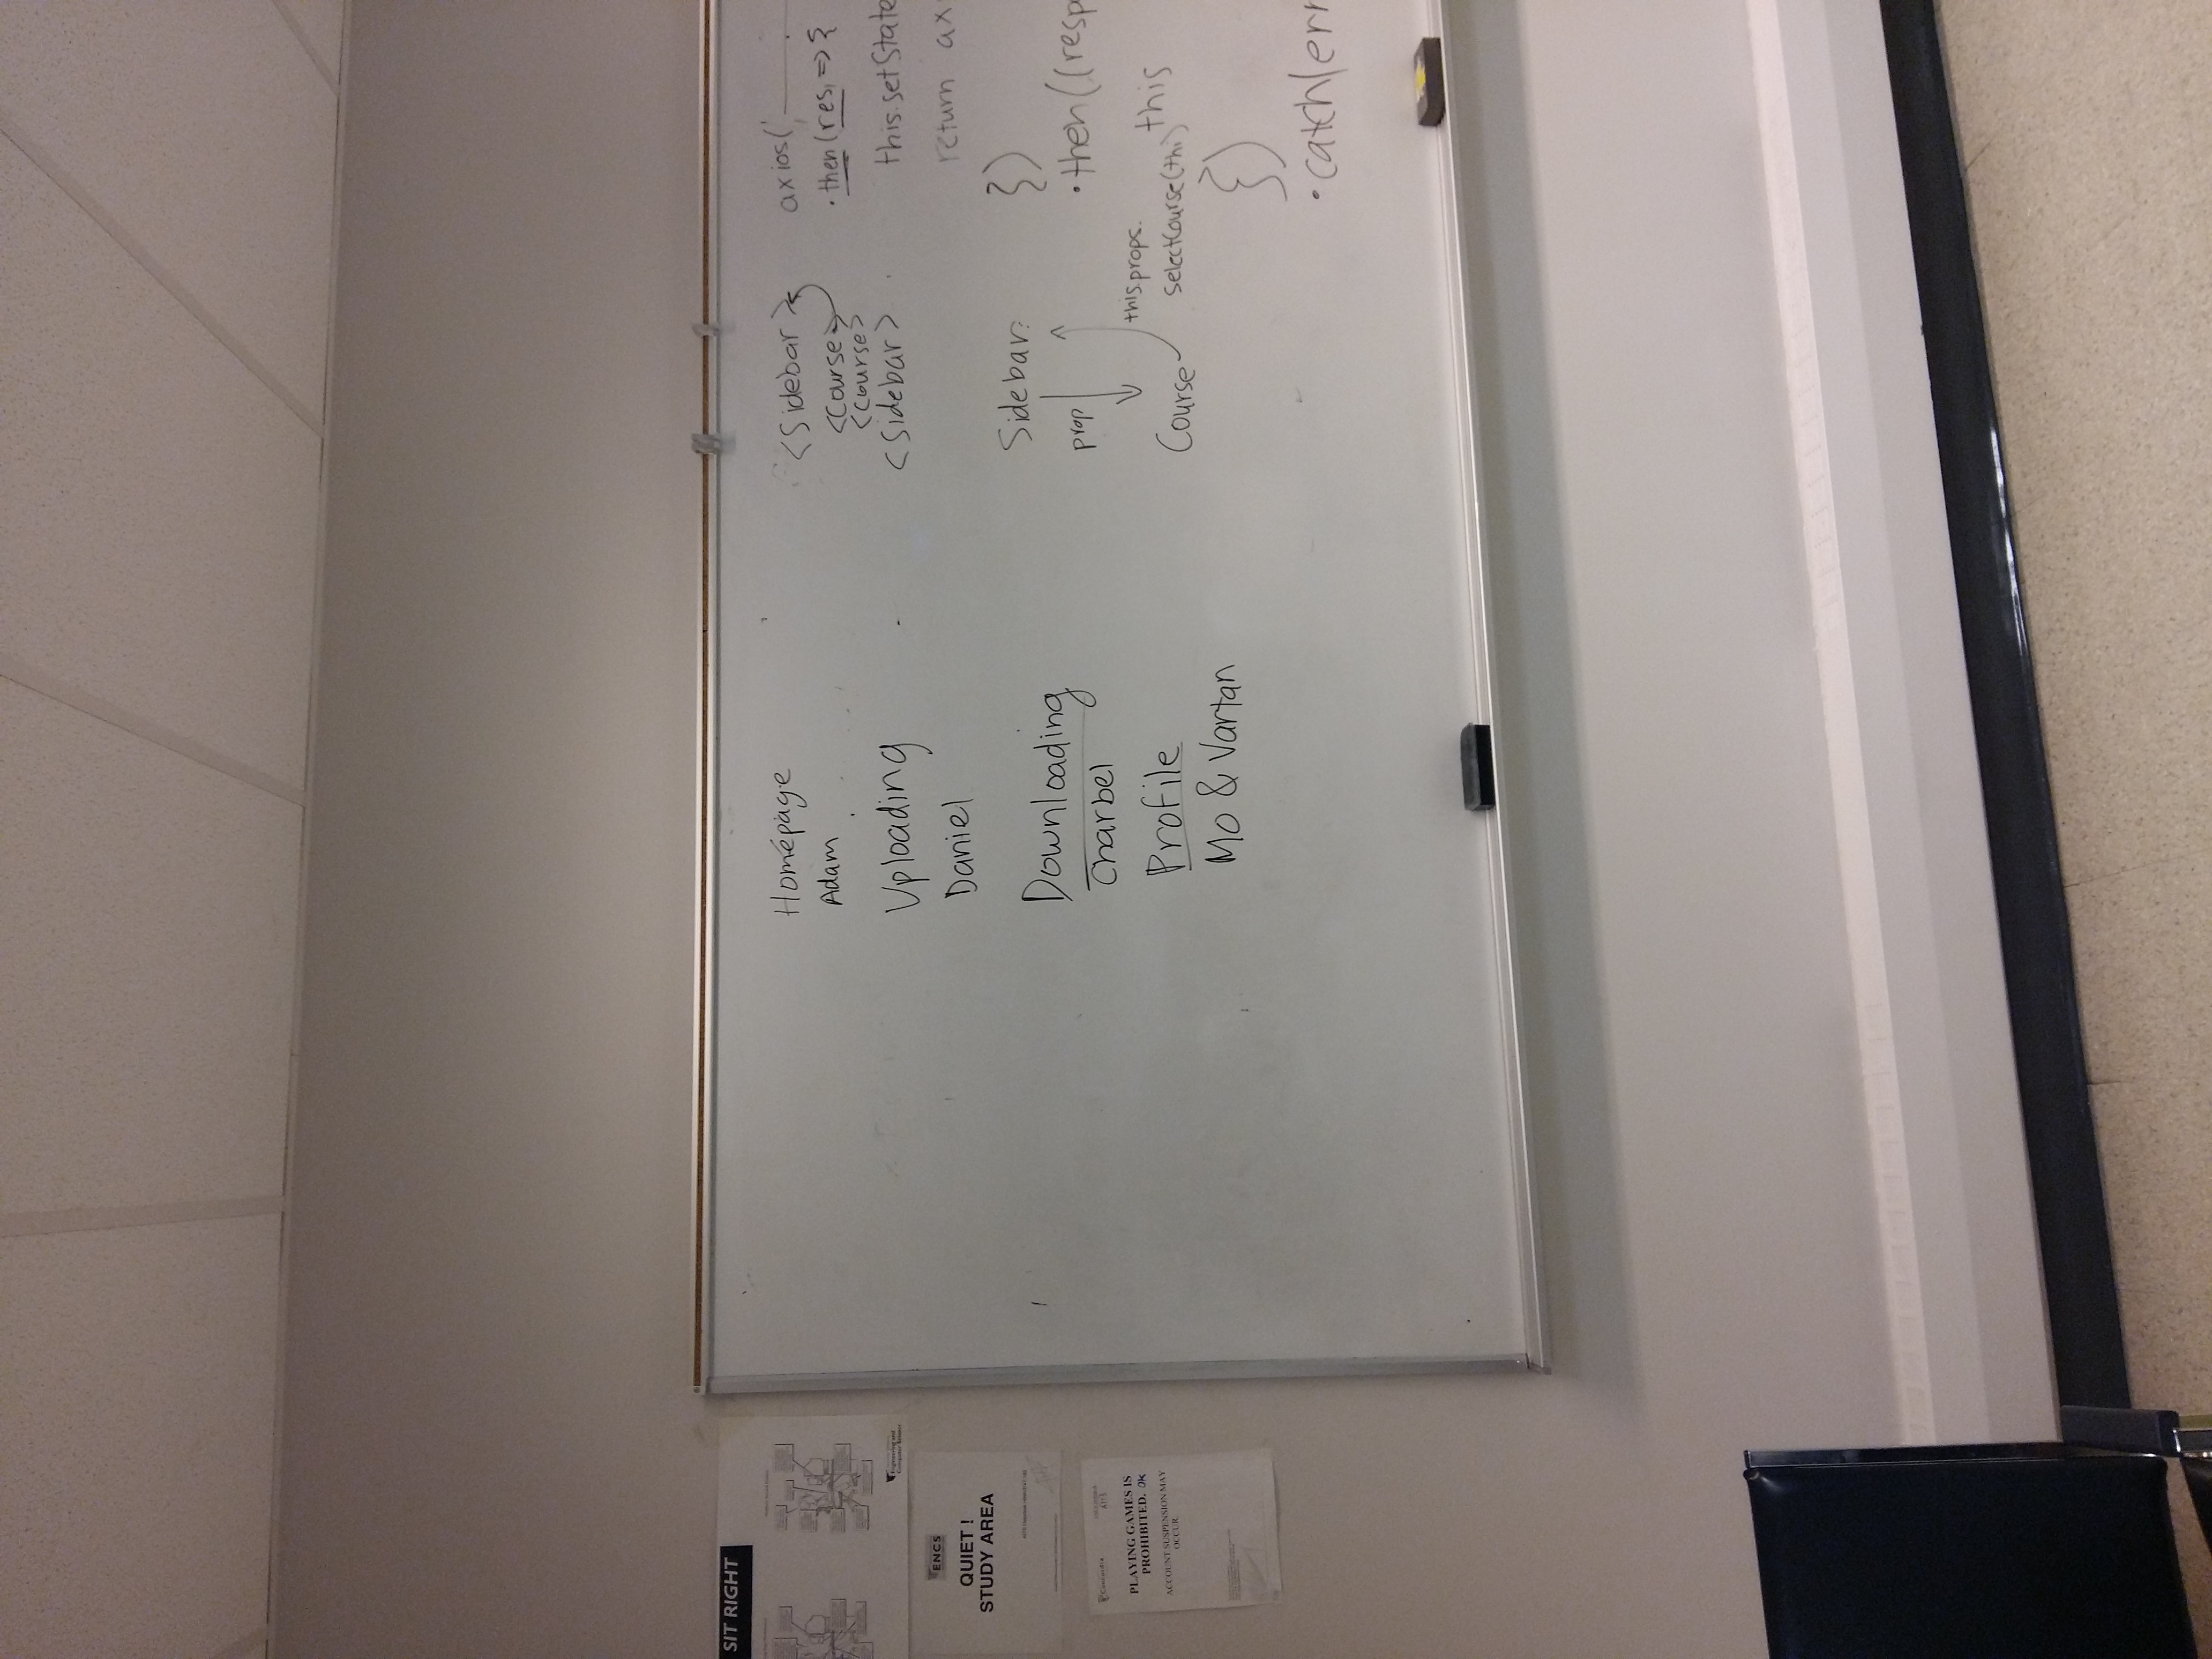 SIT RIGHT
Engineering and
Computer Science
ENCS
QUIET !
STUDY AREA
Concordia
PLAYING GAMES IS
PROHIBITED. OK
ACCOUNT SUSPENSION MAY
OCCUR
Homepage
Adam
Uploading
Daniel
Downloading
Charbel
Profile
Mo & Vartan
<Sidebar>
<Course>
<Course>
<Sidebar>
Sidebar:
prop
Course
this.props.
selectCourse(thi)
axios('
.then(res, => {
this.setState
return ax
})
.then((resp
this
})
.catch(err